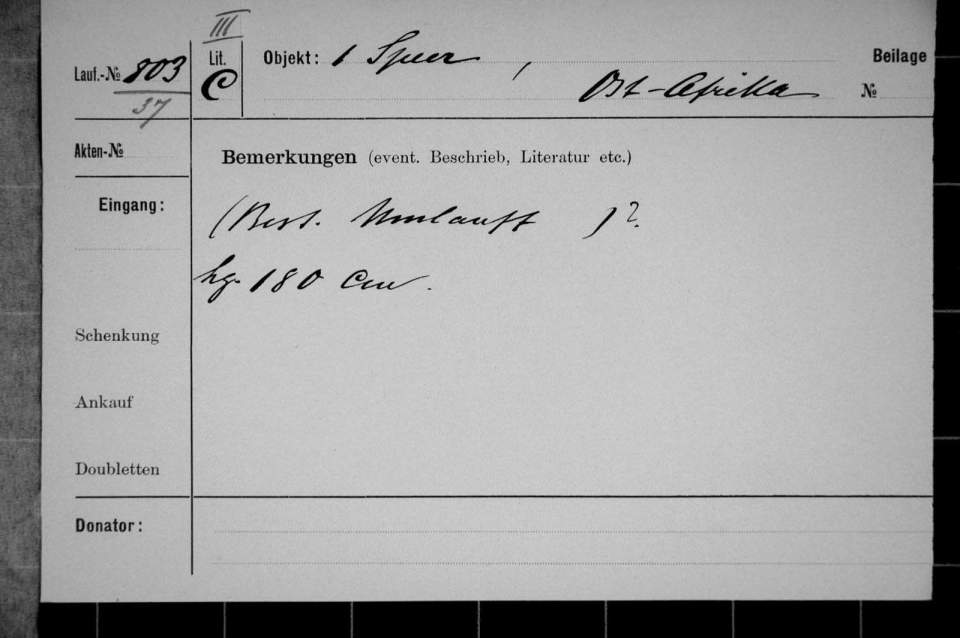 III
Lauf.-№ 803
37
Lit.
C
Objekt: 1 Speer,
Ost-Afrika
Beilage
№
Akten-№
Bemerkungen (event. Beschrieb, Literatur etc.)
Eingang:
(Best. Umlauff )?
lg. 180 Cm.
Schenkung
Ankauf
Doubletten
Donator: